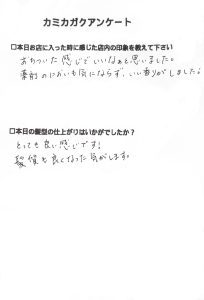 カミカガクアンケート
□本日お店に入った時に感じた店内の印象を教えて下さい
おちついた感じでいいなぁと思いました。
薬剤のにおいも気にならず、いい香りがしました！
□本日の髪型の仕上がりはいかがでしたか？
とっても良い感じです！
髪質も良くなった気がします。